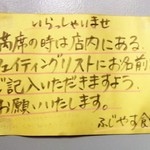 いらっしゃいませ
満席の時は店内にある、
ウェイティングリストにお名前
ご記入いただきますよう、
お願いいたします。
ふじやす食